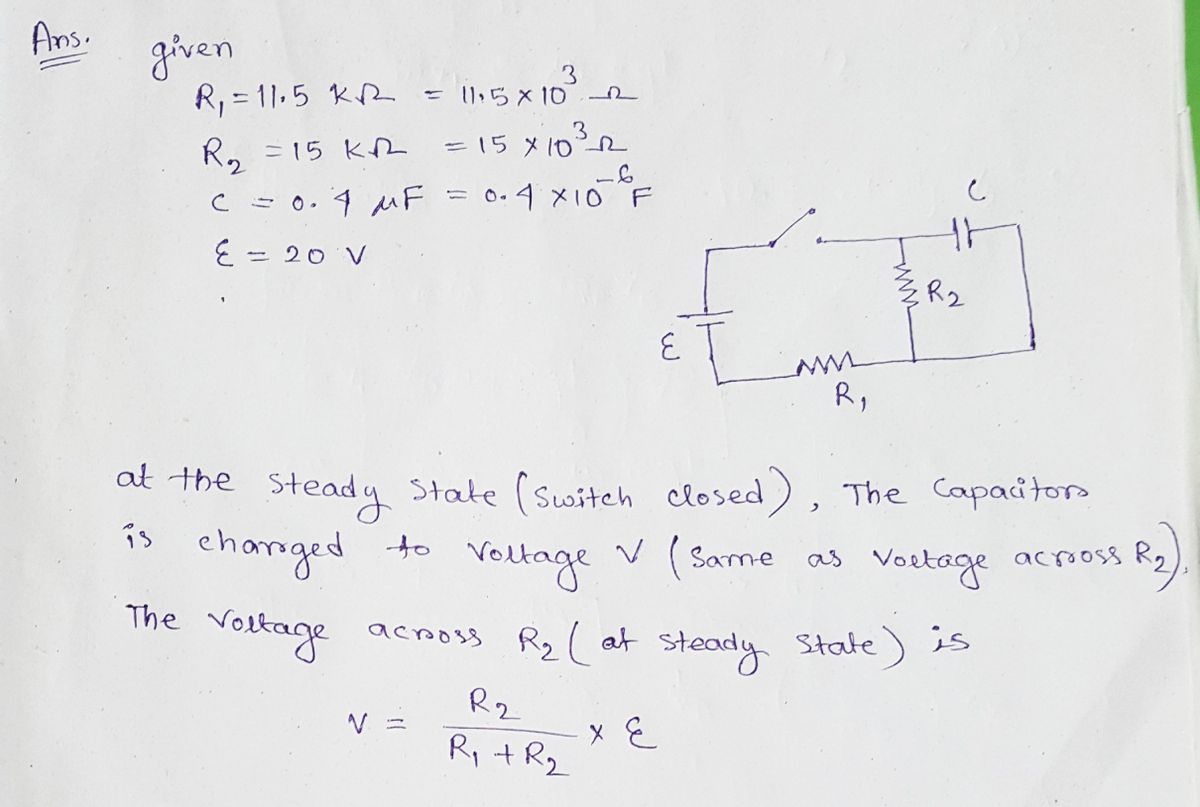 Ans.
given
R₁ = 11.5 KΩ = 11.5 × 10³ Ω
R₂ = 15 KΩ = 15 × 10³ Ω
C = 0.4 μF = 0.4 × 10⁻⁶ F
ε = 20 V
C
R₂
ε
R₁
at the steady state (switch closed), The Capacitors
is charged to voltage V (Same as voltage across R₂).
The voltage across R₂ (at steady state) is
V = R₂ / (R₁ + R₂) × ε